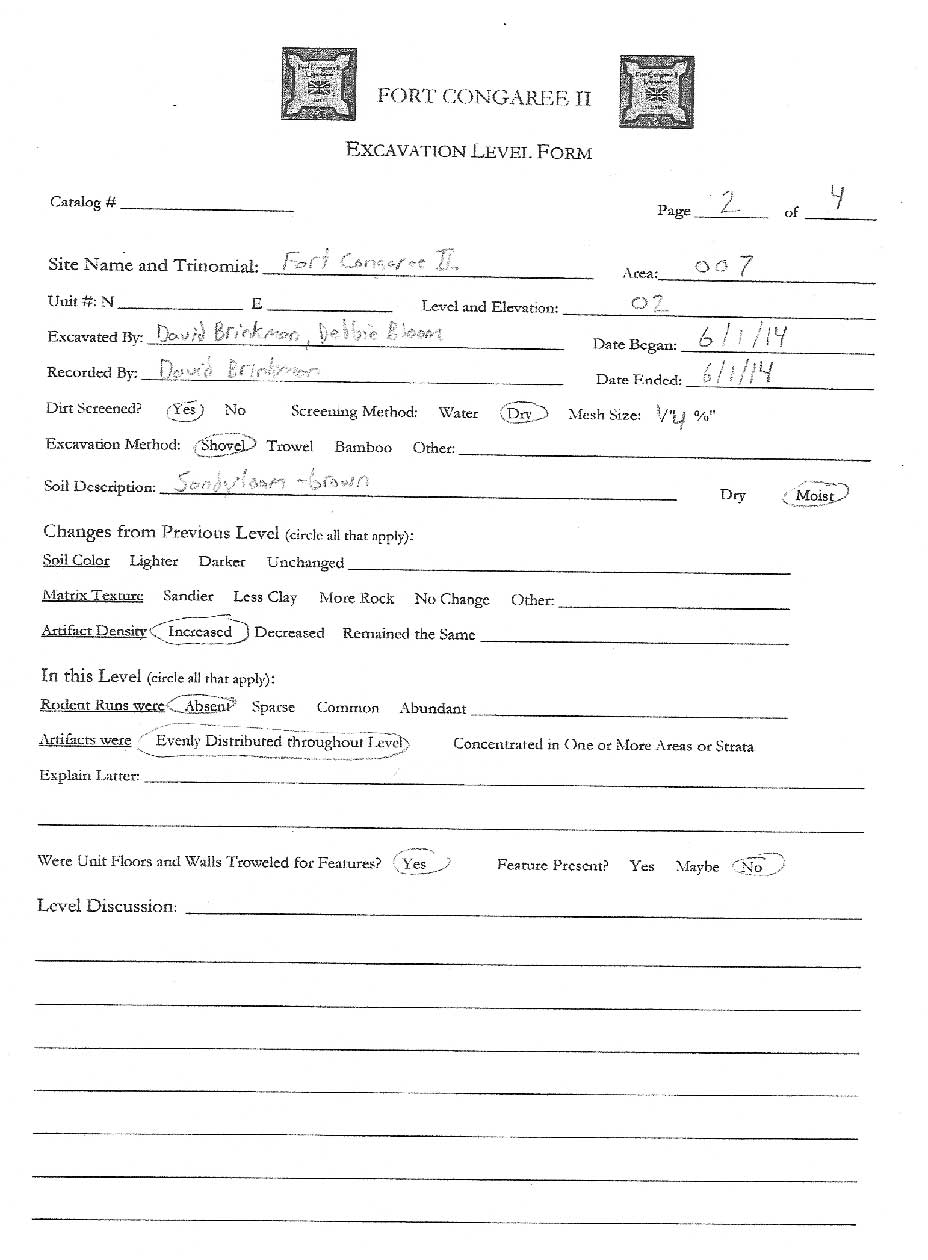 FORT CONGAREE II
EXCAVATION LEVEL FORM
Catalog #
Page 2 of 4
Site Name and Trinomial: Fort Congaree II
Area: 007
Unit #: N E Level and Elevation: 02
Excavated By: David Brinkman, Debbie Bloom
Date Began: 6/1/14
Recorded By: David Brinkman
Date Ended: 6/1/14
Dirt Screened? Yes No Screening Method: Water Dry Mesh Size: 1/4"
Excavation Method: Shovel Trowel Bamboo Other:
Soil Description: Sandy loam - brown Dry Moist
Changes from Previous Level (circle all that apply):
Soil Color Lighter Darker Unchanged
Matrix Texture Sandier Less Clay More Rock No Change Other:
Artifact Density Increased Decreased Remained the Same
In this Level (circle all that apply):
Rodent Runs were Absent Sparse Common Abundant
Artifacts were Evenly Distributed throughout Level Concentrated in One or More Areas or Strata
Explain Latter:
Were Unit Floors and Walls Troweled for Features? Yes Feature Present? Yes Maybe No
Level Discussion: